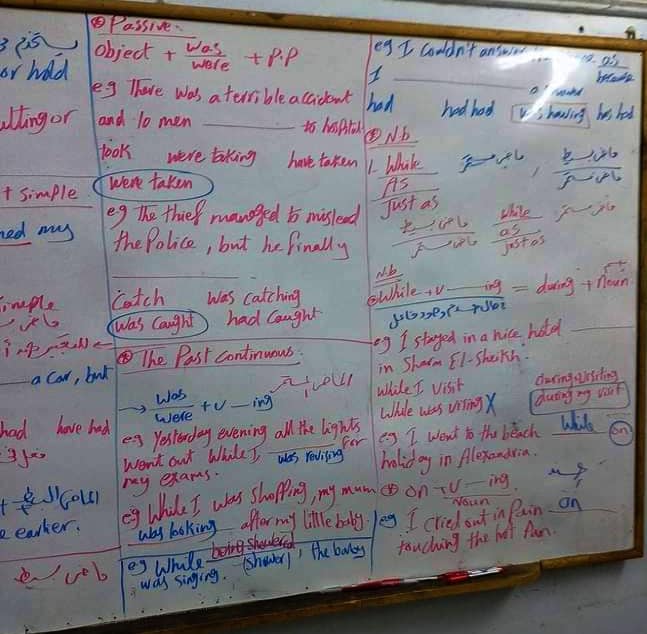 or hold
ulting or
t simple
ned my
a car, but
had have had
e earlier.
ماضى بسيط
Passive:
Object + was + P.P
were
e.g There was a terrible accident
and 10 men ______ to hospital
took were taking have taken
were taken
eg The thief managed to mislead
the Police, but he finally
______
Catch was catching
was caught had caught
The Past Continuous.
الماضى المستمر
→ was
were + v __ ing
eg Yesterday evening all the lights
went out while I was revising for
my exams.
eg While I was shopping, my mum
was looking after my little baby.
eg While being showered (shower), the baby
was singing.
eg I couldn't answer as
I ______ because
had had had was having has had
N.b
1. While ماضى مستمر , ماضى بسيط
As ماضى مستمر
Just as
ماضى بسيط while ماضى مستمر
ماضى مستمر as
just as
N.b
While + v __ ing = during + noun
eg I stayed in a nice hotel ______
in Sharm El-Sheikh.
while I visit during visiting
while was visiting X during my visit
eg I went to the beach while on
holiday in Alexandria.
on + v __ ing
Noun
eg I cried out in pain on
touching the hot pan.